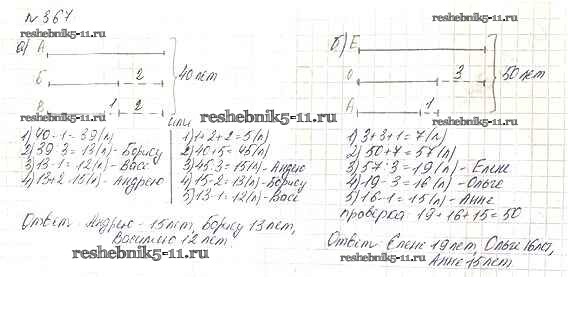 №367
reshebnik5-11.ru
а) А
Б 2
В 1 2
40 лет
reshebnik5-11.ru
б) Е
О 3
А 1
50 лет
reshebnik5-11.ru
или
1) 40-1=39(л)
2) 39:3=13(л)-Борису
3) 13-1=12(л)-Васе
4) 13+2=15(л)-Андрею
1) 1+2+2=5(л)
2) 40+5=45(л)
3) 45:3=15(л)-Андрею
4) 15-2=13(л)-Борису
5) 13-1=12(л)-Васе
Ответ: Андрею-15лет, Борису 13лет,
Василию 12 лет.
reshebnik5-11.ru
1) 3+3+1=7(л)
2) 50+7=57(л)
3) 57:3=19(л)-Елене
4) 19-3=16(л)-Ольге
5) 16-1=15(л)-Анне
проверка 19+16+15=50
Ответ: Елене 19лет, Ольге 16лет,
Анне 15лет
reshebnik5-11.ru